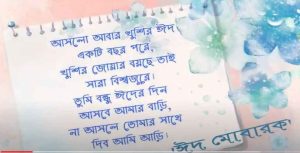 আসলো আবার খুশির ঈদ
একটি বছর পরে,
খুশির জোয়ার বয়ছে তাই
সারা বিশ্বজুরে।
তুমি বন্ধু ঈদের দিন
আসবে আমার বাড়ি,
না আসলে তোমার সাথে
দিব আমি আড়ি।
ঈদ মোবারক